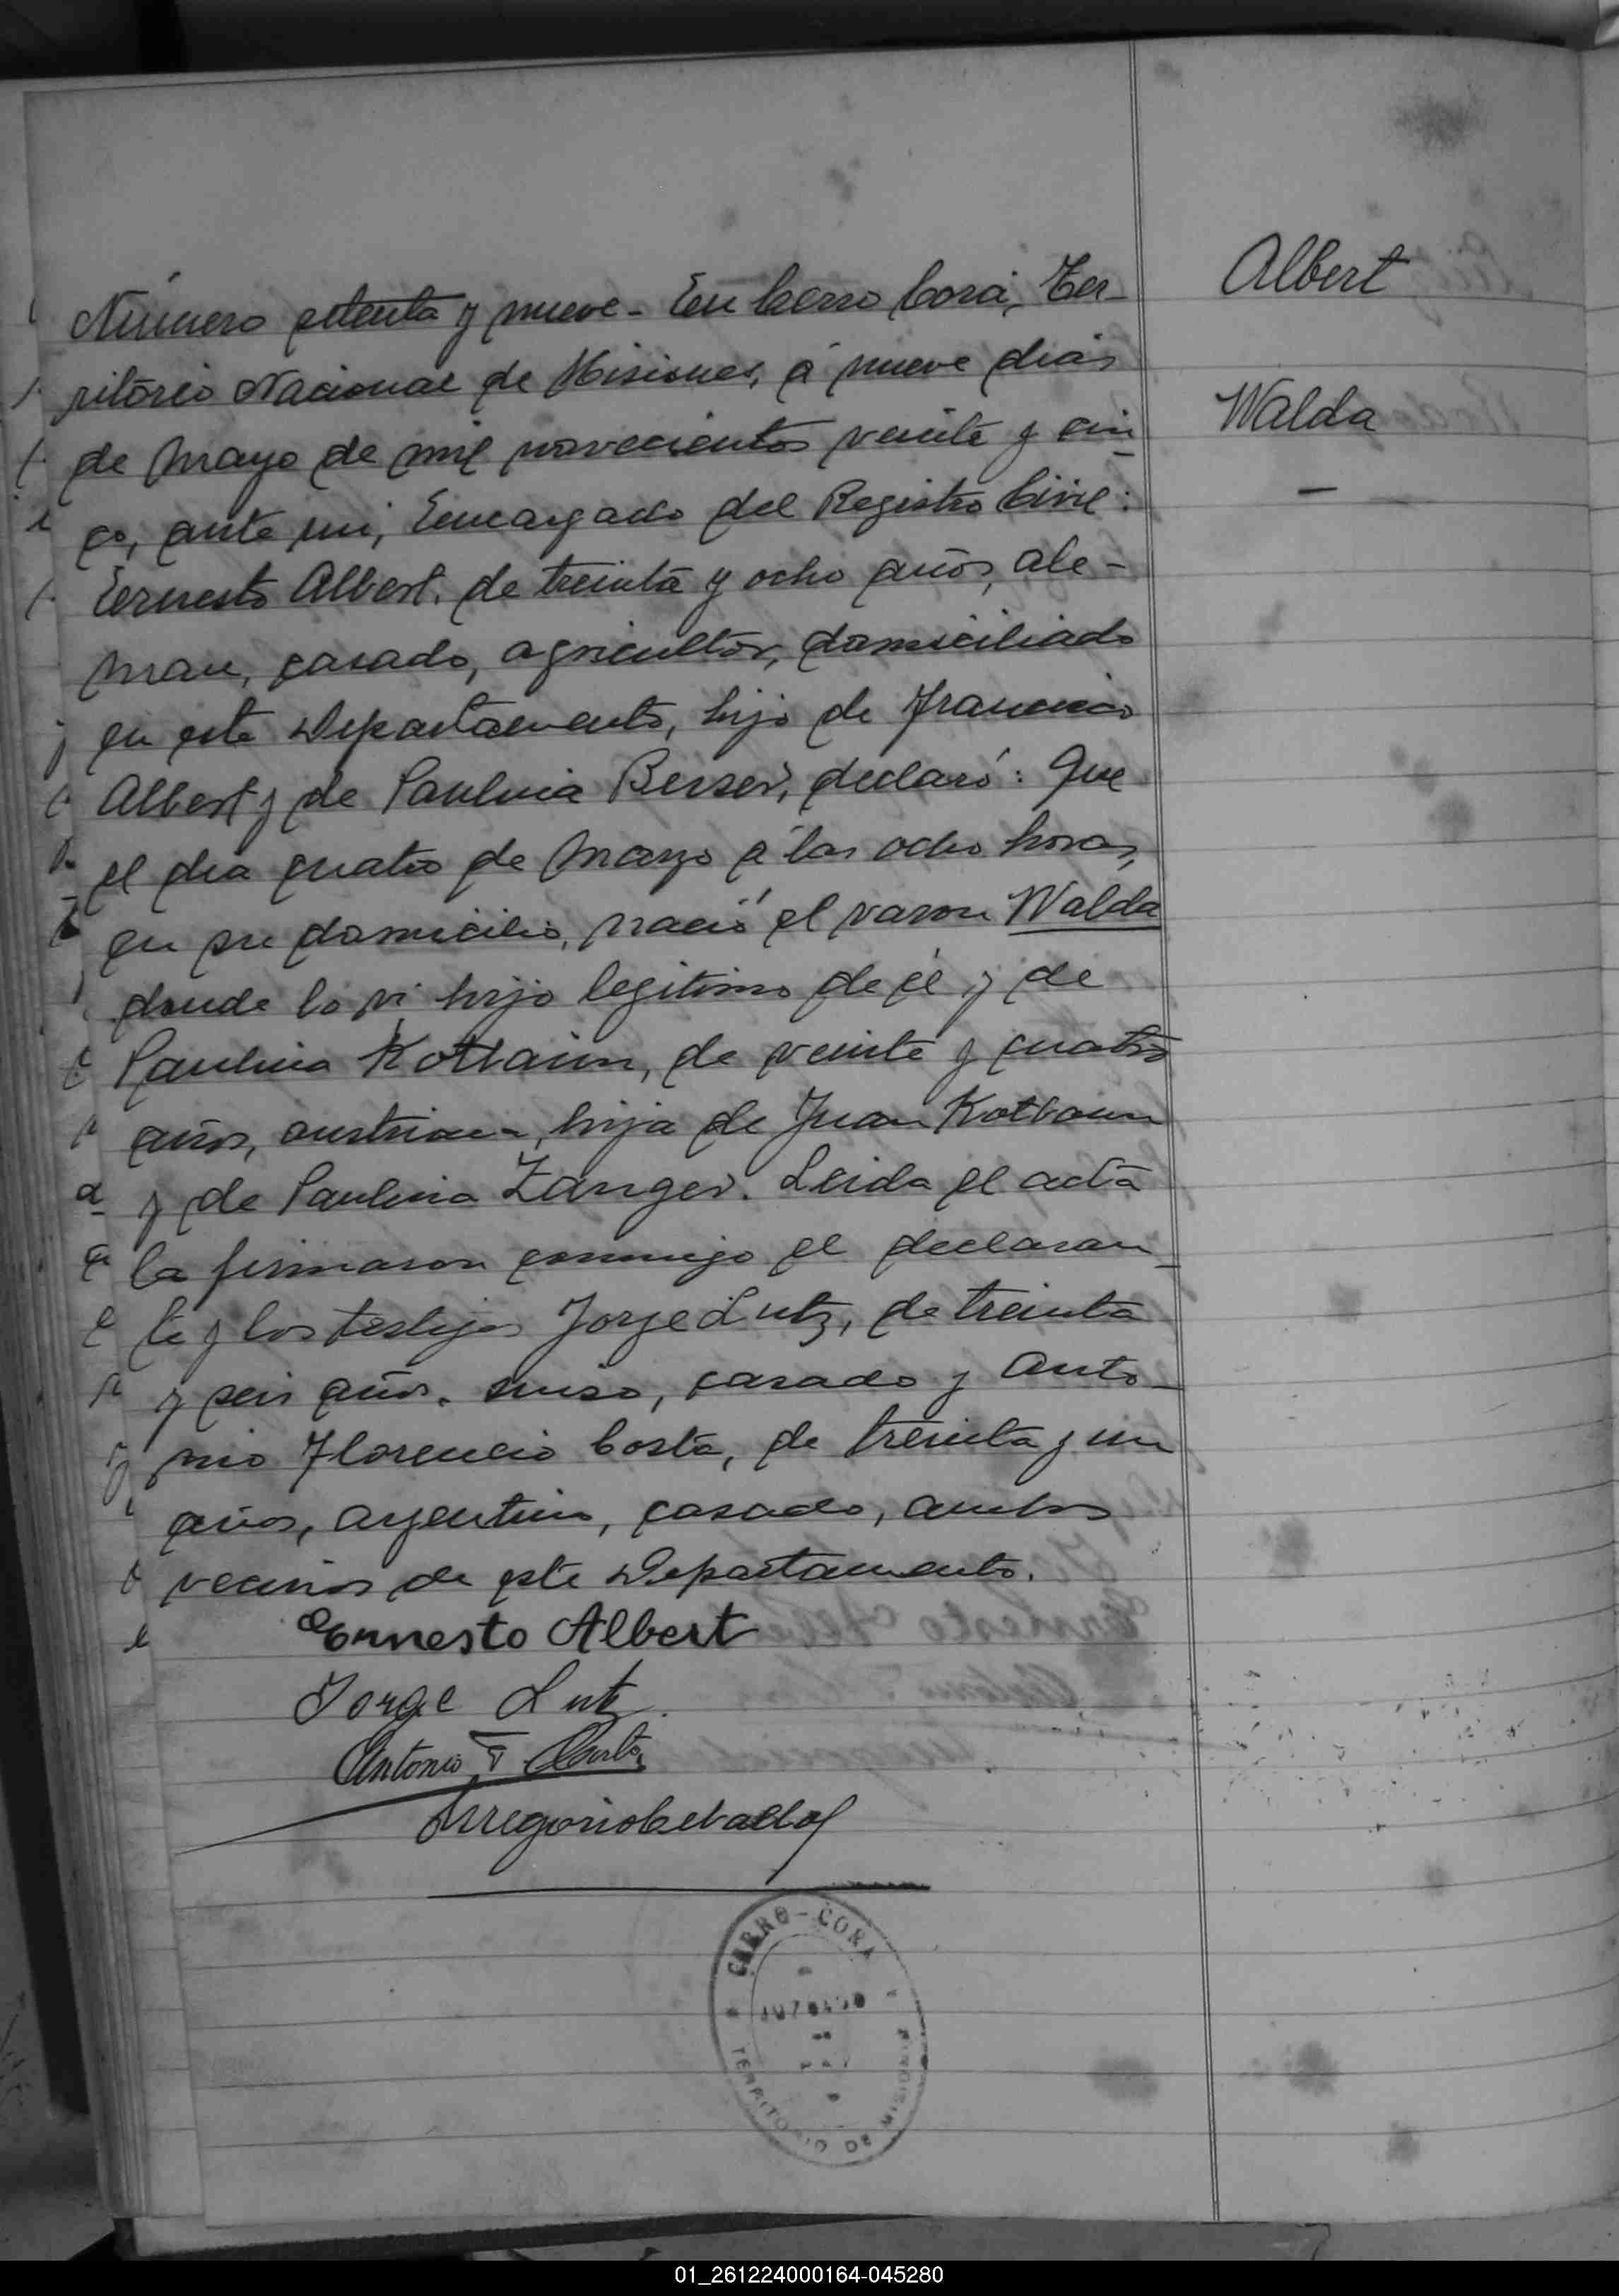 Albert
Walda
Número setenta y nueve - En Cerro Corá, Ter-
ritorio Nacional de Misiones, á nueve dias
de Mayo de mil novecientos veinte y cin-
co, ante mi, Encargado del Registro Civil:
Ernesto Albert, de treinta y ocho años, ale-
man, casado, agricultor, domiciliado
en este Departamento, hijo de Francisco
Albert y de Paulina Berser, declaró: Que
el dia cuatro de Marzo á las ocho horas,
en su domicilio, nació el varon Walda
donde lo vi hijo legitimo de él y de
Paulina Kottaun, de veinte y cuatro
años, austriaca, hija de Juan
y de Paulina Zanger. Leida el acta
la firmaron conmigo el declaran-
te y los testigos Jorge Lutz, de treinta
y seis años, suiso, casado y Anto-
nio Florencio Costa, de treinta y un
años, argentino, casado, ambos
vecinos de este Departamento.
Ernesto Albert
Jorge Lutz.
Antonio F. Costa
CERRO-CORA
TERRITORIO DE MISIONES
01_261224000164-045280